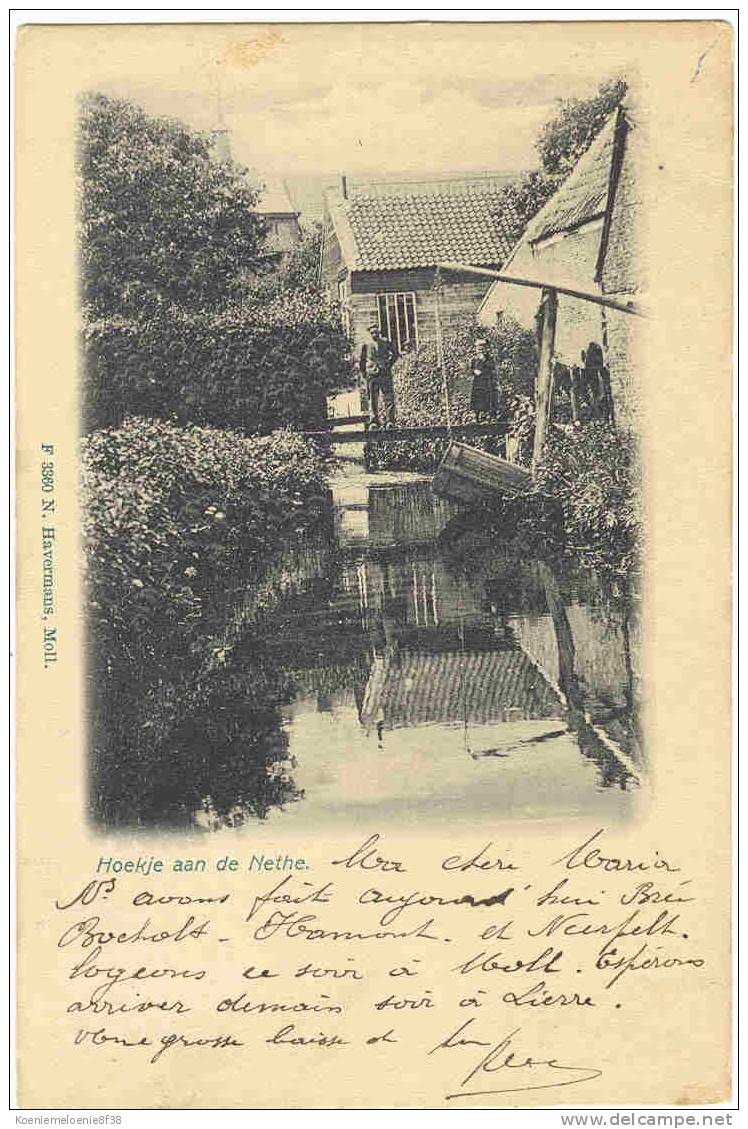 F 3360 N. Havermans, Moll.
Hoekje aan de Nethe. Ma chère Maria
Ns avons fait aujourd'hui Brée
Bocholt - Hamont. et Neerpelt.
logeons ce soir à Moll. Espérons
arriver demain soir à Lierre.
Une grosse baise de
Koeniemeloenie8f38
www.delcampe.net